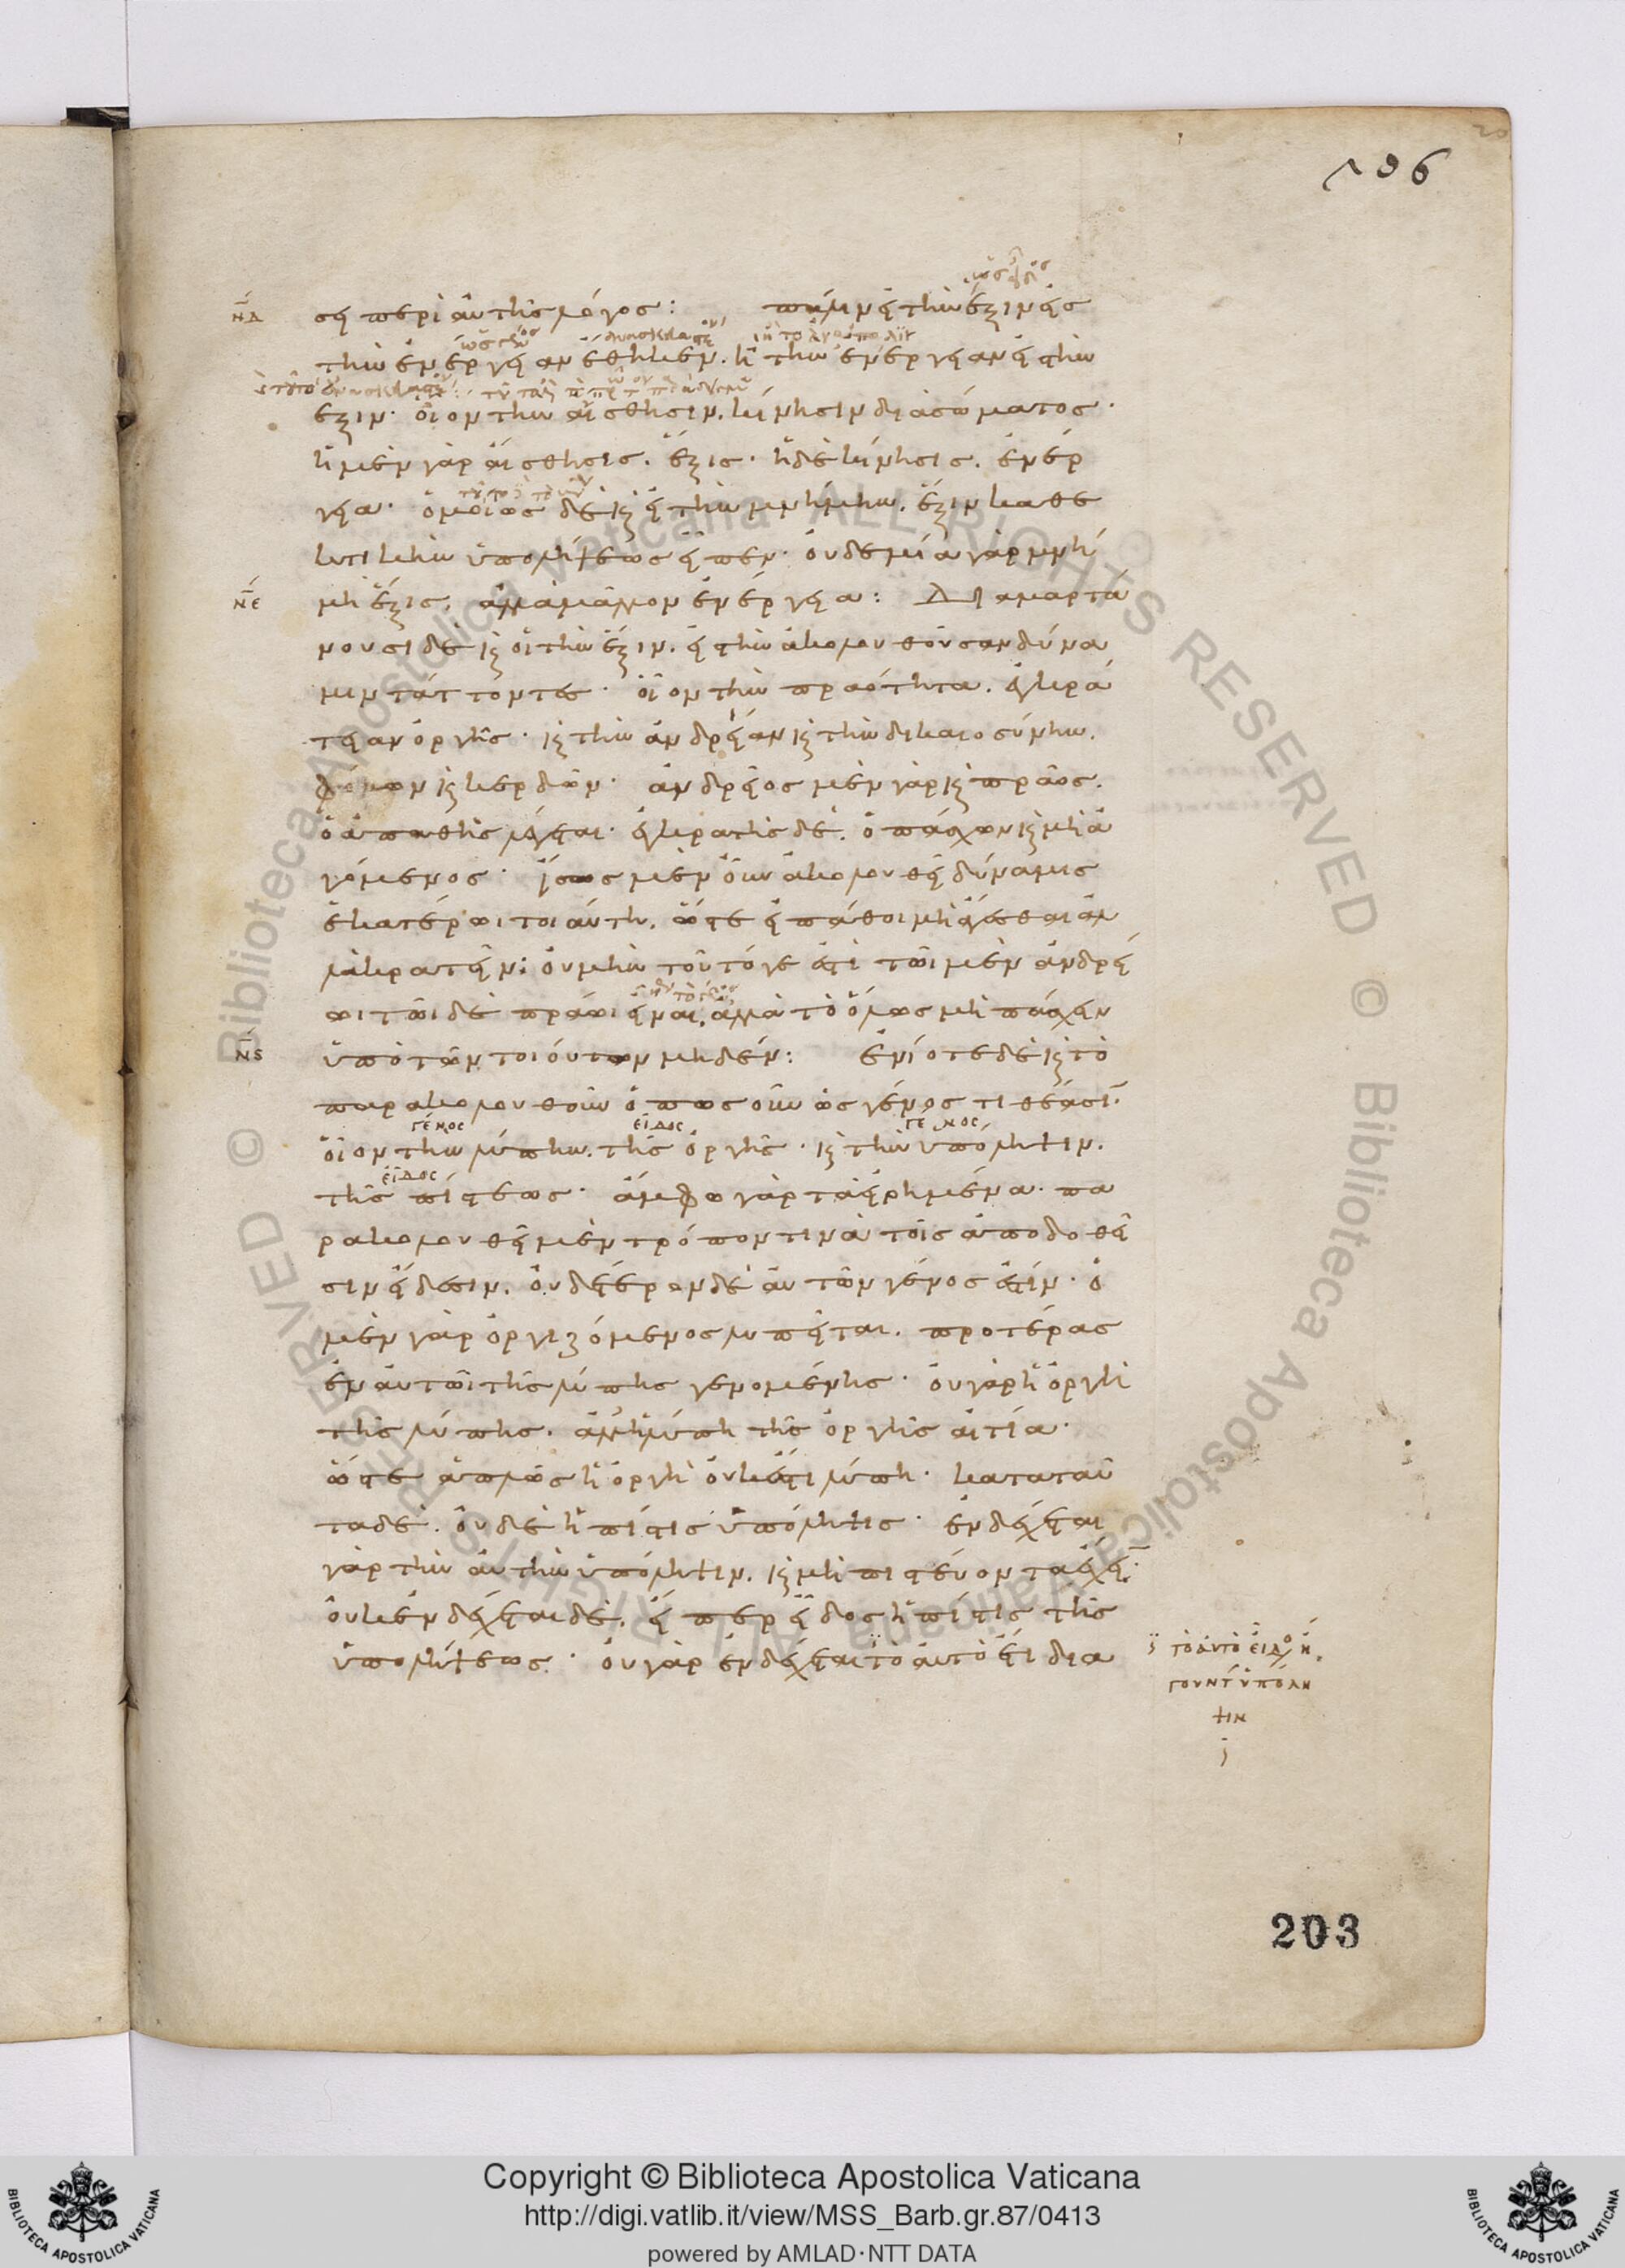 196
ν̅δ̅
σει περὶ αὐτῆς λόγος: πάλιν εἰ τὴν ἕξιν εἰς
τὴν ἐνέργειαν ἔθηκεν. ἢ τὴν ἐνέργειαν εἰς τὴν
ἕξιν· οἷον τὴν αἴσθησιν. κίνησιν διὰ σώματος·
ἡ μὲν γὰρ αἴσθησις. ἕξις· ἡ δὲ κίνησις. ἐνέρ
γεια· ὁμοίως δὲ καὶ εἰ τὴν μνήμην. ἕξιν καθε
κτικὴν ὑπολήψεως εἶπεν· οὐδεμία γὰρ μνή
ν̅ε̅
μη ἕξις. ἀλλὰ μᾶλλον ἐνέργεια: Διαμαρτά
νουσι δὲ καὶ οἱ τὴν ἕξιν. εἰς τὴν ἀκολουθοῦσαν δύνα
μιν τάττοντες· οἷον τὴν πραότητα. ἐγκρά
τειαν ὀργῆς· καὶ τὴν ἀνδρείαν καὶ τὴν δικαιοσύνην.
φόβων καὶ κερδῶν· ἀνδρεῖος μὲν γὰρ καὶ πρᾶος.
ὁ ἀπαθὴς λέγεται· ἐγκρατὴς δὲ. ὁ πάσχων καὶ μὴ ἀ
γόμενος· ἴσως μὲν οὖν ἀκολουθεῖ δύναμις
ἑκατέρωι τοιαύτη. ὥστε εἰ πάθοι μὴ ἄγεσθαι ἀλ
λὰ κρατεῖν: οὐ μὴν τοῦτό γε ἐστὶ τῶι μὲν ἀνδρεί
ωι τῶι δὲ πράωι εἶναι. ἀλλὰ τὸ ὅλως μὴ πάσχειν
ν̅ς̅
ὑπὸ τῶν τοιούτων μηδέν: ἐνίοτε δὲ καὶ τὸ
παρακολουθοῦν ὁπωσοῦν ὡς γένος τιθέασι̅·
γένος εἶδος γένος
οἷον τὴν λύπην. τῆς ὀργῆς· καὶ τὴν ὑπόληψιν.
εἶδος
τῆς πίστεως· ἄμφω γὰρ τὰ εἰρημένα· πα
ρακολουθεῖ μὲν τρόπον τινὰ τοῖς ἀποδοθεῖ
σιν εἴδεσιν. οὐδέτερον δὲ αὐτῶν γένος ἐστίν· ὁ
μὲν γὰρ ὀργιζόμενος λυπεῖται. προτέρας
ἐν αὐτῶι τῆς λύπης γενομένης· οὐ γὰρ ἡ ὀργὴ
τῆς λύπης. ἀλλ' ἡ λύπη τῆς ὀργῆς αἰτία·
ὥστε ἁπλῶς ἡ ὀργὴ οὐκ ἔστι λύπη· κατὰ ταῦ
τα δὲ. οὐδὲ ἡ πίστις ὑπόληψις· ἐνδέχεται
γὰρ τὴν αὐτὴν ὑπόληψιν. καὶ μὴ πιστεύοντα ἔχει̅·
οὐκ ἐνδέχεται δὲ. εἴπερ εἶδος ἡ πίστις τῆς
ὑπολήψεως· οὐ γὰρ ἐνδέχεται τὸ αὐτὸ ἔτι δια
τὸ αὐτὸ εἶδος ἤ
γουν τ ὑπόλη
ψιν
203
Copyright © Biblioteca Apostolica Vaticana
http://digi.vatlib.it/view/MSS_Barb.gr.87/0413
powered by AMLAD·NTT DATA